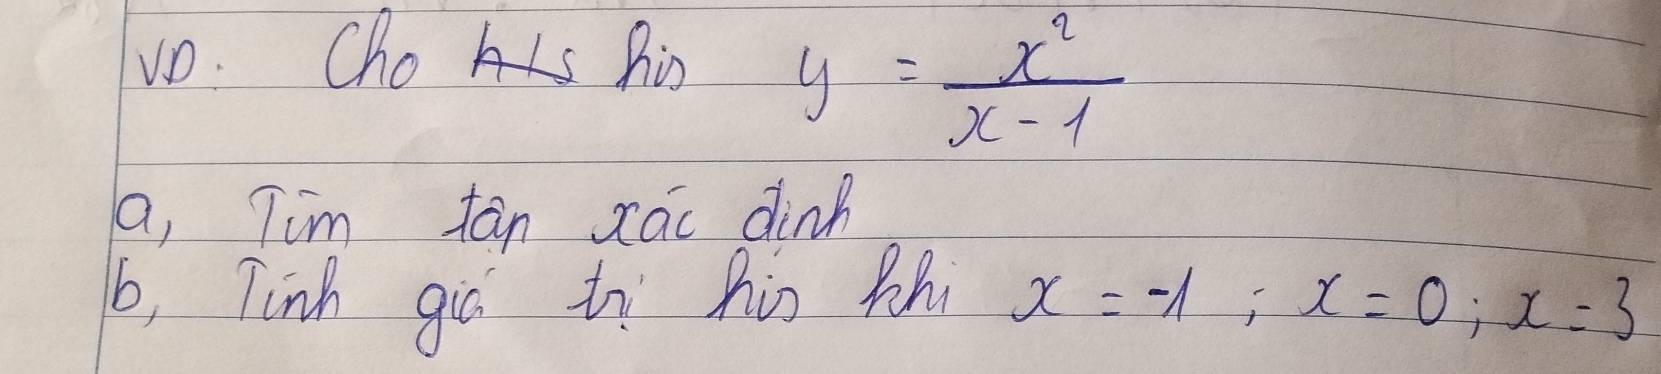 VD. Cho h/s y = x² / x - 1
a, Tìm tập xác định
b, Tính giá trị khi x = -1 ; x = 0 ; x = 3